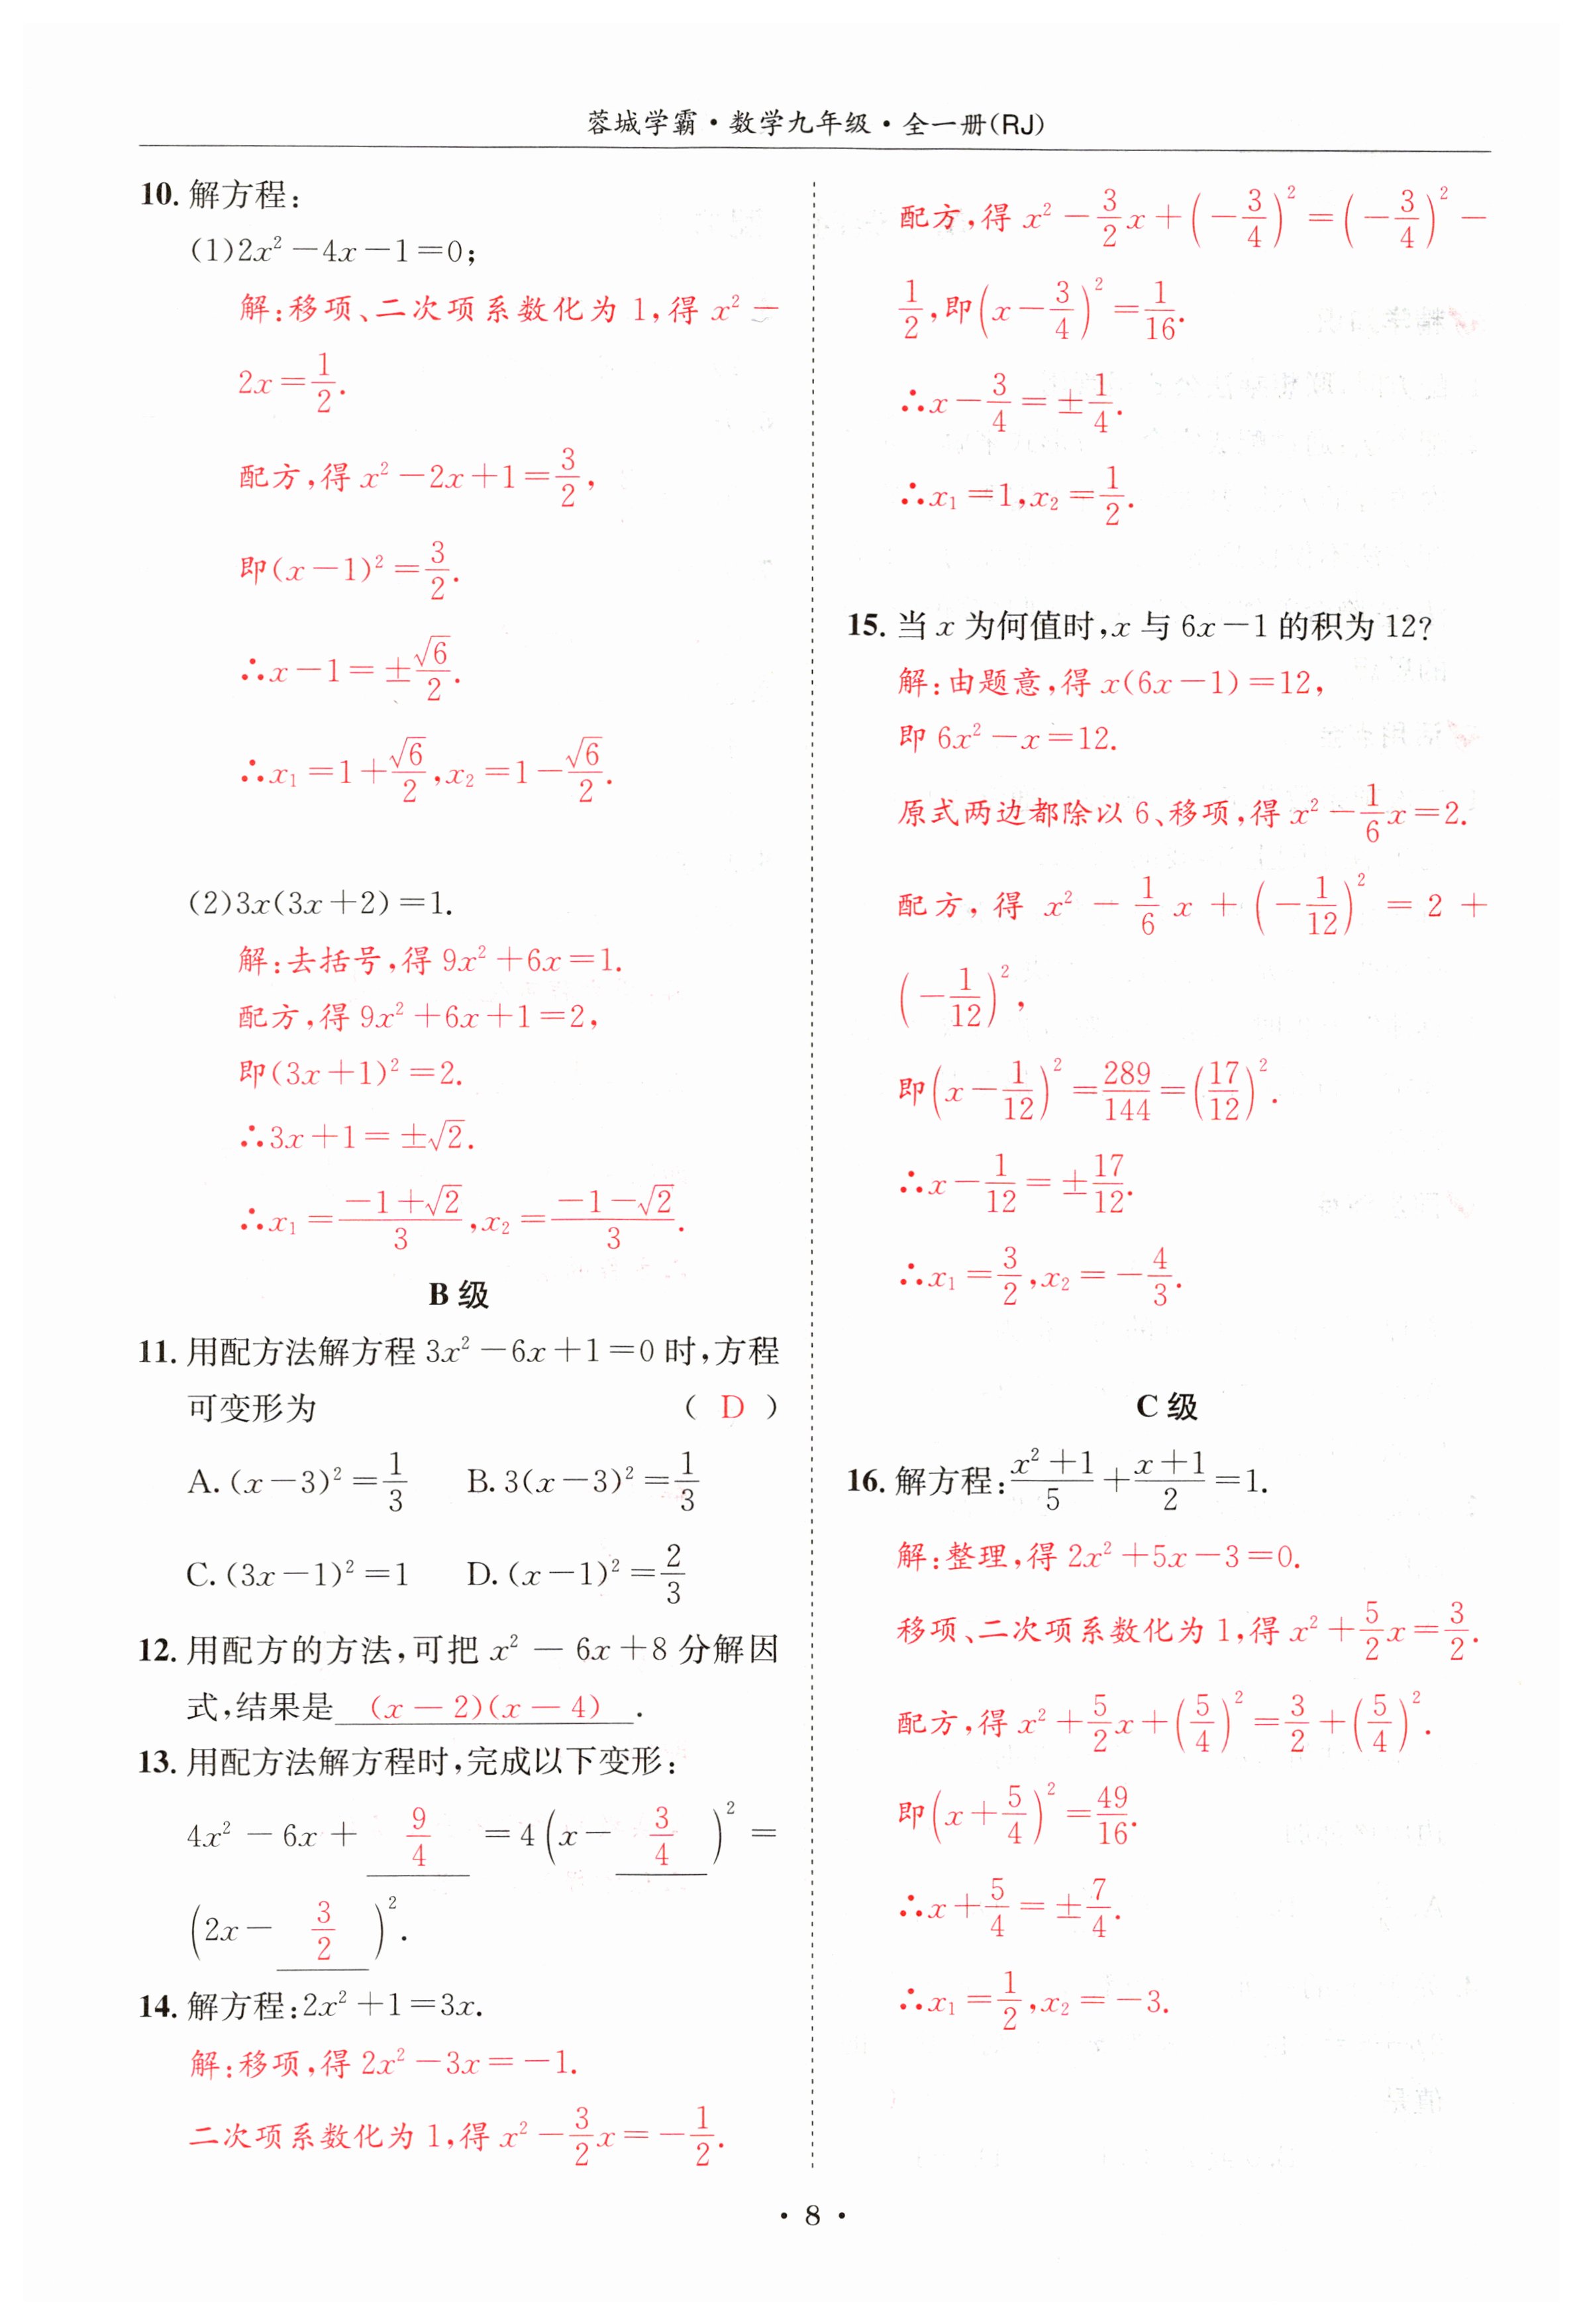 蓉城学霸·数学九年级·全一册(RJ)
10. 解方程:
(1)2x²-4x-1=0;
解:移项、二次项系数化为 1,得 x²-
2x=1/2.
配方,得 x²-2x+1=3/2,
即(x-1)²=3/2.
∴x-1=±√6/2.
∴x₁=1+√6/2,x₂=1-√6/2.
(2)3x(3x+2)=1.
解:去括号,得 9x²+6x=1.
配方,得 9x²+6x+1=2,
即(3x+1)²=2.
∴3x+1=±√2.
∴x₁=(-1+√2)/3,x₂=(-1-√2)/3.
B 级
11. 用配方法解方程 3x²-6x+1=0 时,方程
可变形为 ( D )
A. (x-3)²=1/3 B. 3(x-3)²=1/3
C. (3x-1)²=1 D. (x-1)²=2/3
12. 用配方的方法,可把 x²-6x+8 分解因
式,结果是 (x-2)(x-4) .
13. 用配方法解方程时,完成以下变形:
4x²-6x+ 9/4 =4(x- 3/4 )²=
(2x- 3/2 )².
14. 解方程:2x²+1=3x.
解:移项,得 2x²-3x=-1.
二次项系数化为 1,得 x²-3/2x=-1/2.
配方,得 x²-3/2x+(-3/4)²=(-3/4)²-
1/2,即(x-3/4)²=1/16.
∴x-3/4=±1/4.
∴x₁=1,x₂=1/2.
15. 当 x 为何值时,x 与 6x-1 的积为 12?
解:由题意,得 x(6x-1)=12,
即 6x²-x=12.
原式两边都除以 6、移项,得 x²-1/6x=2.
配方,得 x²-1/6x+(-1/12)²=2+
(-1/12)²,
即(x-1/12)²=289/144=(17/12)².
∴x-1/12=±17/12.
∴x₁=3/2,x₂=-4/3.
C 级
16. 解方程:(x²+1)/5+(x+1)/2=1.
解:整理,得 2x²+5x-3=0.
移项、二次项系数化为 1,得 x²+5/2x=3/2.
配方,得 x²+5/2x+(5/4)²=3/2+(5/4)².
即(x+5/4)²=49/16.
∴x+5/4=±7/4.
∴x₁=1/2,x₂=-3.
· 8 ·